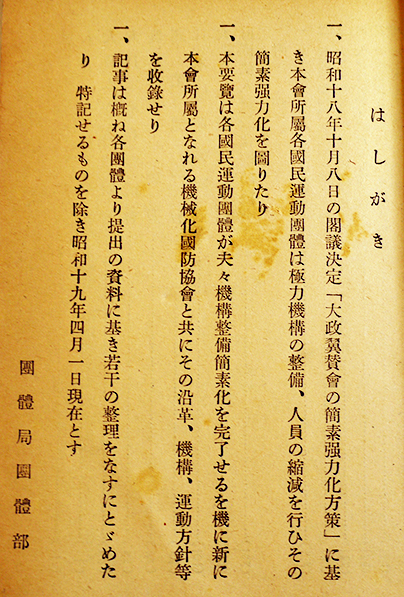 はしがき
一、昭和十八年十月八日の閣議決定「大政翼賛會の簡素强力化方策」に基
き本會所屬各國民運動團體は極力機構の整備、人員の縮減を行ひその
簡素强力化を圖りたり
一、本要覽は各國民運動團體が夫々機構整備簡素化を完了せるを機に新に
本會所屬となれる機械化國防協會と共にその沿革、機構、運動方針等
を收錄せり
一、記事は概ね各團體より提出の資料に基き若干の整理をなすにとゞめた
り　特記せるものを除き昭和十九年四月一日現在とす
團體局團體部